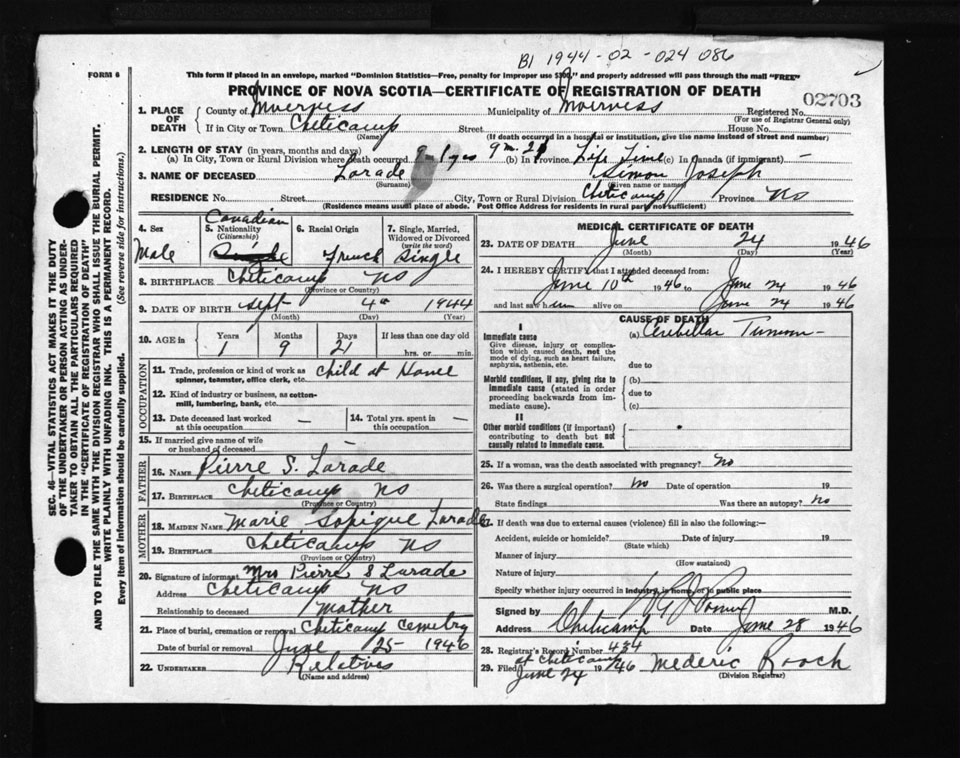 B1 1944-02-024086
FORM 6
This form if placed in an envelope, marked "Dominion Statistics—Free, penalty for improper use $300," and properly addressed will pass through the mail "FREE"
PROVINCE OF NOVA SCOTIA—CERTIFICATE OF REGISTRATION OF DEATH
02703
1. PLACE OF DEATH
County of Inverness Municipality of Inverness Registered No.
(For use of Registrar General only)
If in City or Town Cheticamp Street House No.
(Name) (If death occurred in a hospital or institution, give the name instead of street and number)
2. LENGTH OF STAY (in years, months and days)
(a) In City, Town or Rural Division where death occurred 1 yrs 9 m. 21 (b) In Province Life Time (c) In Canada (if immigrant) —
3. NAME OF DECEASED Larade Simon Joseph
(Surname) (Given name or names)
RESIDENCE No. Street City, Town or Rural Division Cheticamp Province NS
(Residence means usual place of abode. Post Office Address for residents in rural parts not sufficient)
4. Sex Male
5. Nationality (Citizenship) Canadian Single
6. Racial Origin French
7. Single, Married, Widowed or Divorced (write the word) Single
8. BIRTHPLACE Cheticamp NS
(Province or Country)
9. DATE OF BIRTH Sept 4th 1944
(Month) (Day) (Year)
10. AGE in Years Months Days If less than one day old
1 9 21 hrs. or min.
OCCUPATION
11. Trade, profession or kind of work as spinner, teamster, office clerk, etc. Child at Home
12. Kind of industry or business, as cotton-mill, lumbering, bank, etc.
13. Date deceased last worked at this occupation —
14. Total yrs. spent in this occupation —
15. If married give name of wife or husband of deceased —
FATHER
16. NAME Pierre S. Larade
17. BIRTHPLACE Cheticamp NS
(Province or Country)
MOTHER
18. MAIDEN NAME Marie Sopique Larade
19. BIRTHPLACE Cheticamp NS
(Province or Country)
20. Signature of informant Mrs Pierre S Larade
Address Cheticamp NS
Relationship to deceased Mother
21. Place of burial, cremation or removal Cheticamp Cemetry
Date of burial or removal June 25 1946
22. UNDERTAKER Relatives
(Name and address)
MEDICAL CERTIFICATE OF DEATH
23. DATE OF DEATH June 24 1946
(Month) (Day) (Year)
24. I HEREBY CERTIFY that I attended deceased from:
June 10th 1946 to June 24 1946
and last saw him alive on June 24 1946
CAUSE OF DEATH
I
Immediate cause
Give disease, injury or complication which caused death, not the mode of dying, such as heart failure, asphyxia, asthenia, etc.
(a) Cerebellar Tumour
due to
Morbid conditions, if any, giving rise to immediate cause (stated in order proceeding backwards from immediate cause)
(b)
due to
(c)
II
Other morbid conditions (if important) contributing to death but not causally related to immediate cause.
25. If a woman, was the death associated with pregnancy? No
26. Was there a surgical operation? No Date of operation 19
State findings Was there an autopsy? No
27. If death was due to external causes (violence) fill in also the following:—
Accident, suicide or homicide? Date of injury 19
(State which)
Manner of injury
(How sustained)
Nature of injury
Specify whether injury occurred in industry, in home, or in public place
Signed by M.D.
Address Cheticamp Date June 28 1946
28. Registrar's Record Number 434
29. Filed at Cheticamp June 24 1946 Mederic Roach
(Division Registrar)
SEC. 46—VITAL STATISTICS ACT MAKES IT THE DUTY
OF THE UNDERTAKER OR PERSON ACTING AS UNDER-
TAKER TO OBTAIN ALL THE PARTICULARS REQUIRED
IN THE "CERTIFICATE OF REGISTRATION OF DEATH"
AND TO FILE THE SAME WITH THE DIVISION REGISTRAR WHO SHALL ISSUE THE BURIAL PERMIT.
WRITE PLAINLY WITH UNFADING INK. THIS IS A PERMANENT RECORD.
Every item of Information should be carefully supplied. (See reverse side for instructions.)